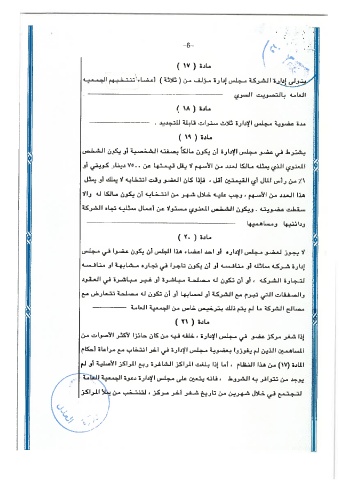 -6-
مادة ( ١٧ )
يتولى إدارة الشركة مجلس إدارة مؤلف من ( ثلاثة ) أعضاء تنتخبهم الجمعية
العامه بالتصويت السري
مادة ( ١٨ )
مدة عضوية مجلس الإدارة ثلاث سنوات قابلة للتجديد .
مادة ( ١٩ )
يشترط في عضو مجلس الإدارة أن يكون مالكاً بصفته الشخصية أو يكون الشخص
المعنوي الذي يمثله مالكا لعدد من الأسهم لا يقل قيمتها عن ٧٥٠٠ دينار كويتي أو
١% من رأس المال أي القيمتين أقل . فإذا كان العضو وقت انتخابه لا يملك أو يمثل
هذا العدد من الأسهم . وجب عليه خلال شهر من انتخابه أن يكون مالكا له والا
سقطت عضويته . ويكون الشخص المعنوي مسئولا عن أعمال ممثليه تجاه الشركة
ودائنيها ومساهميها
مادة ( ٢٠ )
لا يجوز لعضو مجلس الإداره أو احد اعضاء هذا المجلس أن يكون عضوا في مجلس
إدارة شركه مماثله أو منافسه أو أن يكون تاجرا في تجاره مشابهة أو منافسه
لتجارة الشركه . أو أن تكون له مصلحة مباشرة أو غير مباشرة في العقود
والصفقات التي تبرم مع الشركة أو لحسابها أو أن تكون له مصلحة تتعارض مع
مصالح الشركة ما لم يكن ذلك بترخيص خاص من الجمعية العامة
مادة ( ٢١ )
إذا شغر مركز عضو في مجلس الإدارة . خلفه فيه من كان حائزا لأكثر الأصوات من
المساهمين الذين لم يفوزوا بعضوية مجلس الإدارة في اخر انتخاب مع مراعاة أحكام
المادة (١٧) من هذا النظام . أما إذا بلغت المراكز الشاغرة ربع المراكز الأصلية أو لم
يوجد من تتوافر به الشروط . فانه يتعين على مجلس الإدارة دعوة الجمعية العامة
لتجتمع في خلال شهرين من تاريخ شغر آخر مركز . لتنتخب من يملأ المراكز